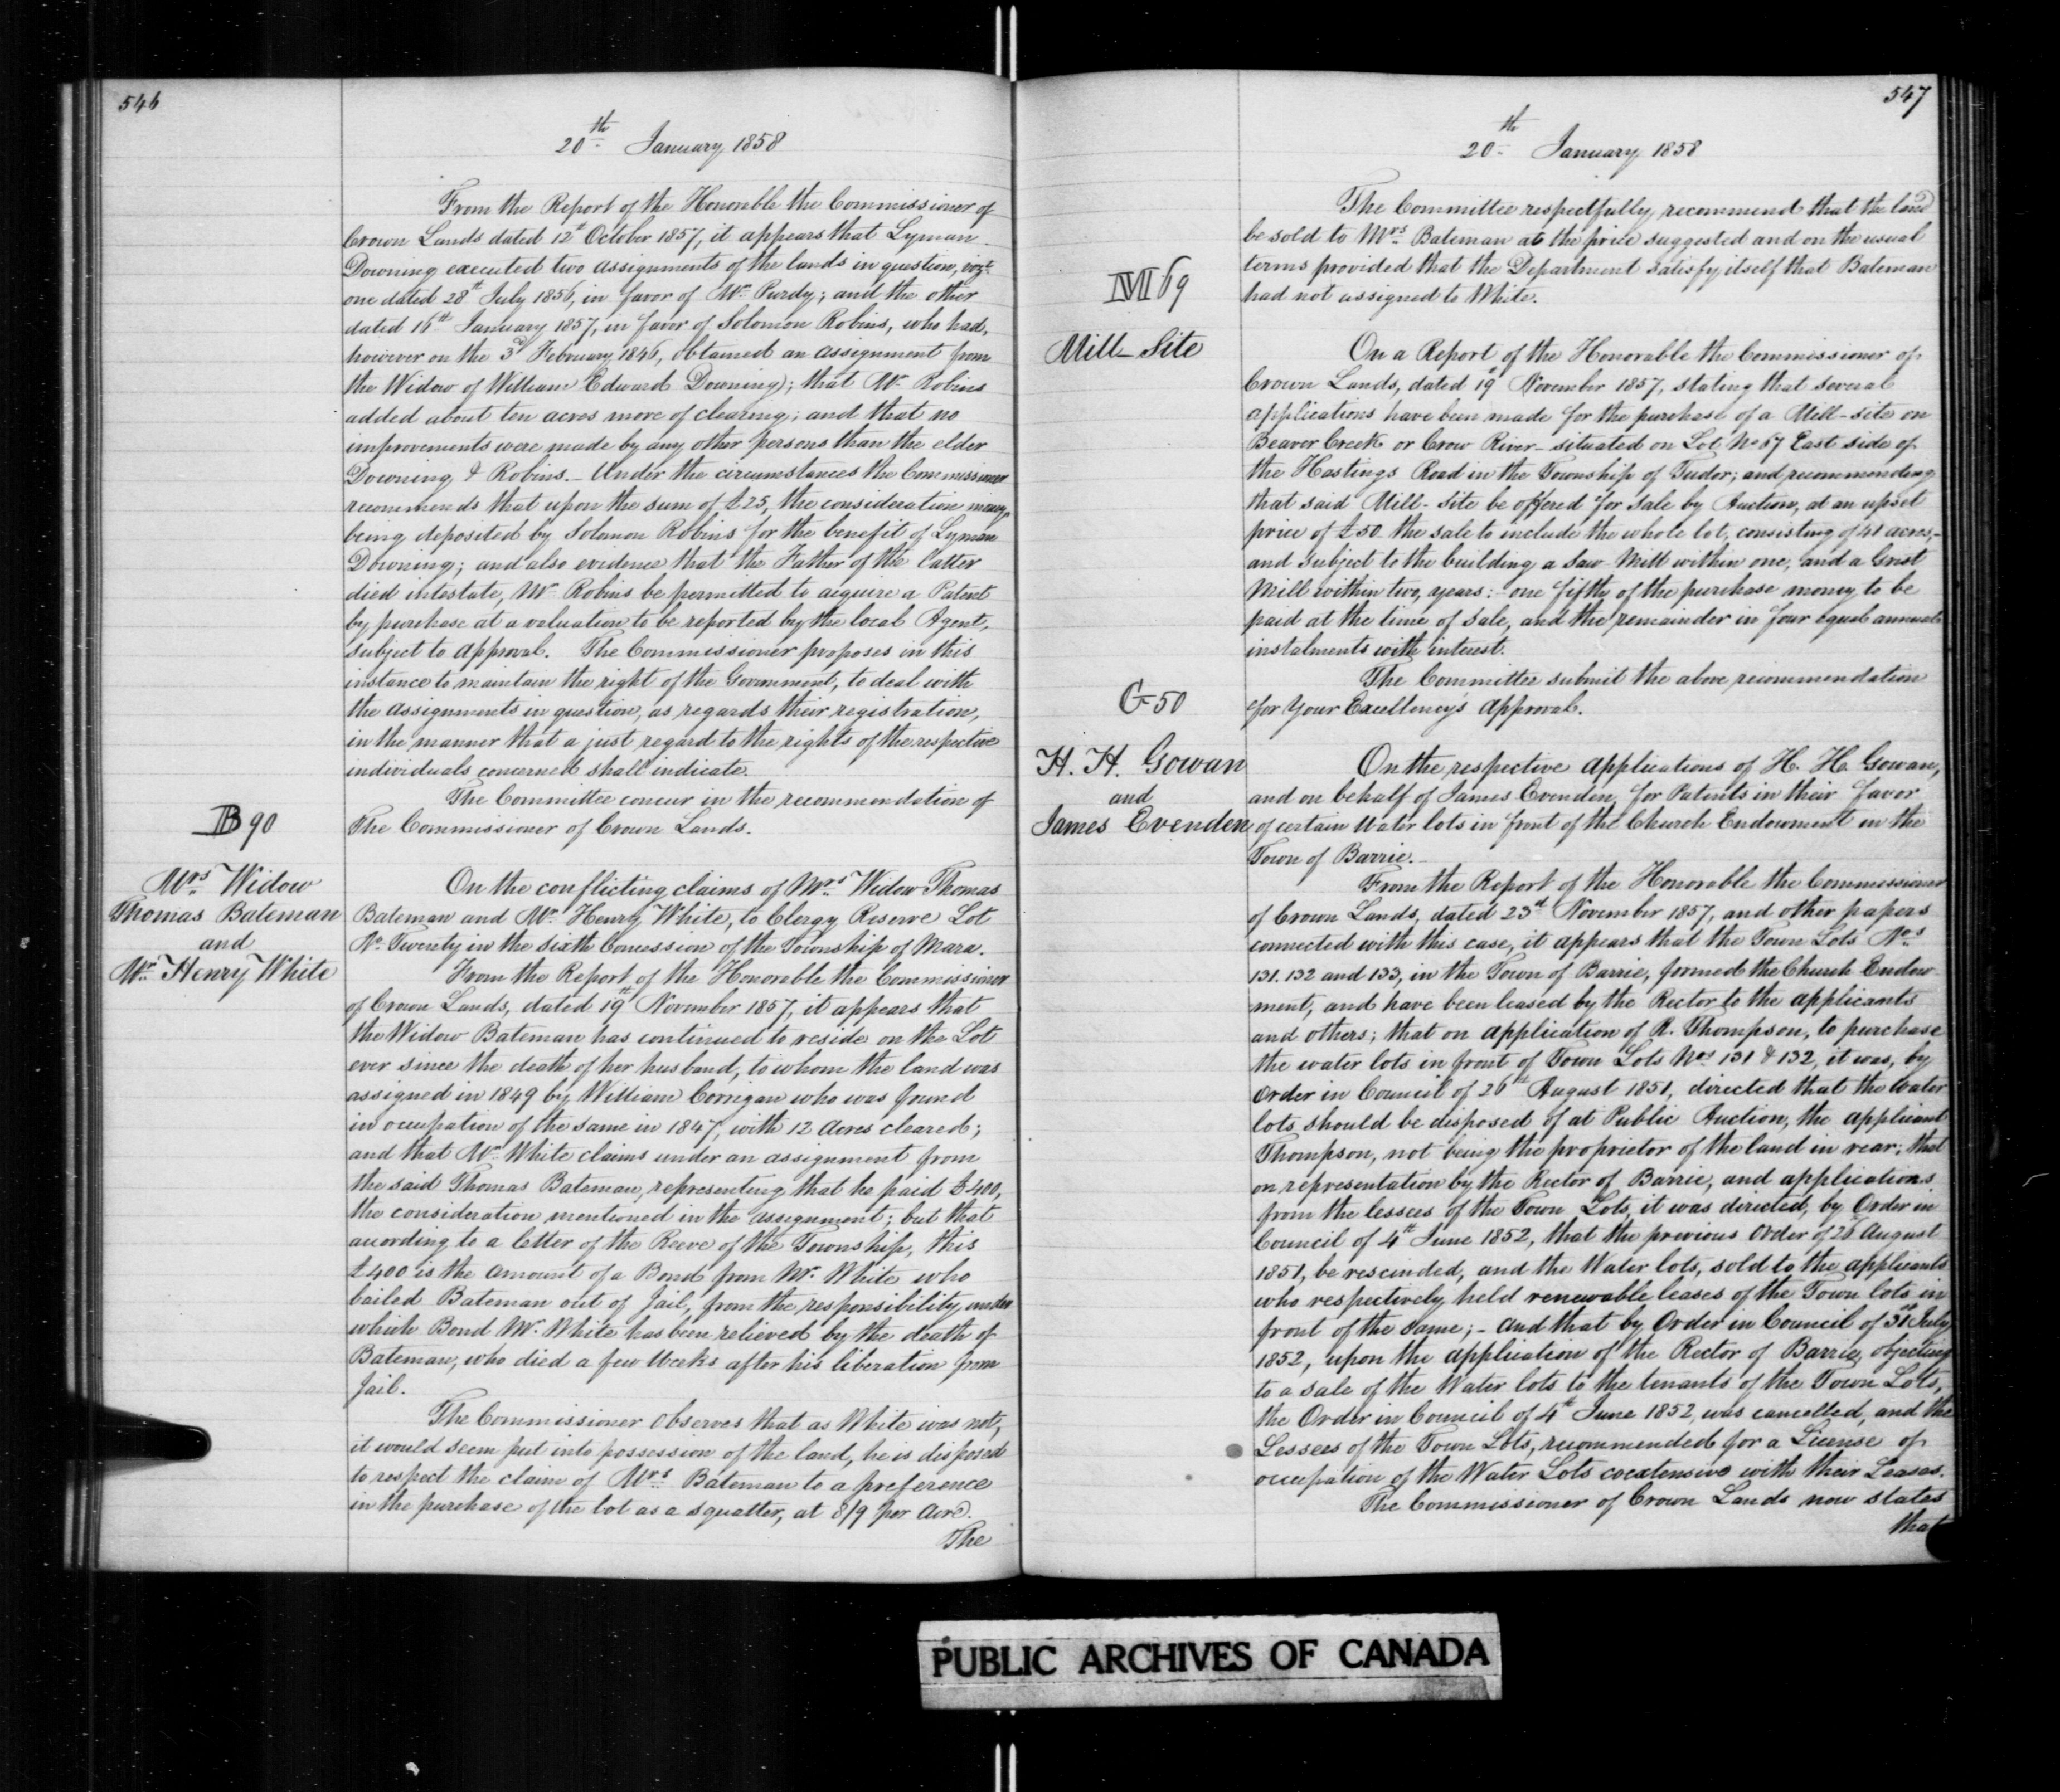 546
20th January 1858
From the Report of the Honorable the Commissioner of
Crown Lands dated 12th October 1857, it appears that Lyman
Downing executed two assignments of the lands in question, vizt
one dated 28th July 1856, in favor of Mr. Purdy; and the other
dated 16th January 1857, in favor of Solomon Robins, who had,
however on the 3d February 1846, obtained an assignment from
the Widow of William Edward Downing); that Mr. Robins
added about ten acres more of clearing; and that no
improvements were made by any other persons than the elder
Downing & Robins. - Under the circumstances the Commissioner
recommends that upon the sum of £25, the consideration money,
being deposited by Solomon Robins for the benefit of Lyman
Downing; and also evidence that the Father of the latter
died intestate, Mr. Robins be permitted to acquire a Patent
by purchase at a valuation to be reported by the local Agent,
subject to approval. The Commissioner proposes in this
instance to maintain the right of the Government, to deal with
the assignments in question, as regards their registration,
in the manner that a just regard to the rights of the respective
individuals concerned shall indicate.
The Committee concur in the recommendation of
The Commissioner of Crown Lands.
B 90
Mrs. Widow
Thomas Bateman
and
Mr. Henry White
On the conflicting claims of Mrs. Widow Thomas
Bateman and Mr. Henry White, to Clergy Reserve Lot
No. Twenty in the sixth Concession of the Township of Mara.
From the Report of the Honorable the Commissioner
of Crown Lands, dated 19th November 1857, it appears that
the Widow Bateman has continued to reside on the Lot
ever since the death of her husband, to whom the land was
assigned in 1849 by William Corrigan who was found
in occupation of the same in 1847, with 12 Acres cleared;
and that Mr. White claims under an assignment from
the said Thomas Bateman, representing that he paid £400,
the consideration mentioned in the assignment; but that
according to a letter of the Reeve of the Township, this
£400 is the amount of a Bond from Mr. White who
bailed Bateman out of Jail, from the responsibility under
which Bond Mr. White has been relieved by the death of
Bateman, who died a few Weeks after his liberation from
Jail.
The Commissioner observes that as White was not,
it would seem put into possession of the land, he is disposed
to respect the claim of Mrs. Bateman to a preference
in the purchase of the lot as a squatter, at 8/9 per Acre.
The
547
20th January 1858
The Committee respectfully recommend that the land
be sold to Mrs. Bateman at the price suggested and on the usual
terms provided that the Department satisfy itself that Bateman
had not assigned to White.
M 69
Mill-Site
On a Report of the Honorable the Commissioner of
Crown Lands, dated 19th November 1857, stating that several
applications have been made for the purchase of a Mill-site on
Beaver Creek or Crow River - situated on Lot No 57 East side of
the Hastings Road in the Township of Tudor; and recommending
that said Mill-Site be offered for sale by Auction, at an upset
price of £50 the sale to include the whole lot, consisting of 41 acres,-
and subject to the building a Saw Mill within one, and a Grist
Mill within two, years: - one fifth of the purchase money to be
paid at the time of sale, and the remainder in four equal annual
instalments with interest.
The Committee submit the above recommendation
for Your Excellency's approval.
G 50
H. H. Gowan
and
James Evenden
On the respective applications of H. H. Gowan,
and on behalf of James Evenden, for Patents in their favor
of certain Water lots in front of the Church Endowment in the
Town of Barrie.
From the Report of the Honorable the Commissioner
of Crown Lands, dated 23d November 1857, and other papers
connected with this case, it appears that the Town Lots Nos.
131. 132 and 133, in the Town of Barrie, formed the Church Endow-
ment, and have been leased by the Rector to the applicants
and others; that on application of R. Thompson, to purchase
the water lots in front of Town Lots Nos 131 & 132, it was, by
Order in Council of 26th August 1851, directed that the Water
lots should be disposed of at Public Auction, the applicant
Thompson, not being the proprietor of the land in rear; that
on representation by the Rector of Barrie, and applications
from the lessees of the Town Lots, it was directed, by Order in
Council of 4th June 1852, that the previous Order of 26 August
1851, be rescinded, and the Water lots, sold to the applicants
who respectively held renewable leases of the Town lots in
front of the same; - and that by Order in Council of 31st July
1852, upon the application of the Rector of Barrie, objecting
to a sale of the Water lots to the tenants of the Town Lots,
the Order in Council of 4th June 1852, was cancelled, and the
Lessees of the Town Lots, recommended for a License of
occupation of the Water Lots coextensive with their Leases.
The Commissioner of Crown Lands now states
that
PUBLIC ARCHIVES OF CANADA